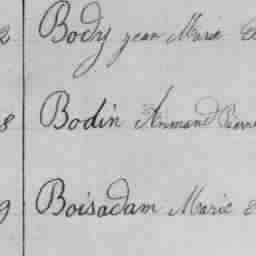 2 Body jean Marie
8 Bodin Armand Pierre
9 Boisadam Marie